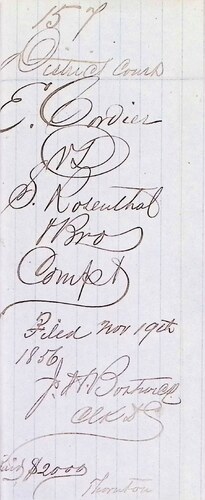 157
District Court
E. Cordier
vs
S. Rosenthal
& Bro
Compt
Filed Nov 19th
1856
Bostwick
Clk
$2000
Thornton